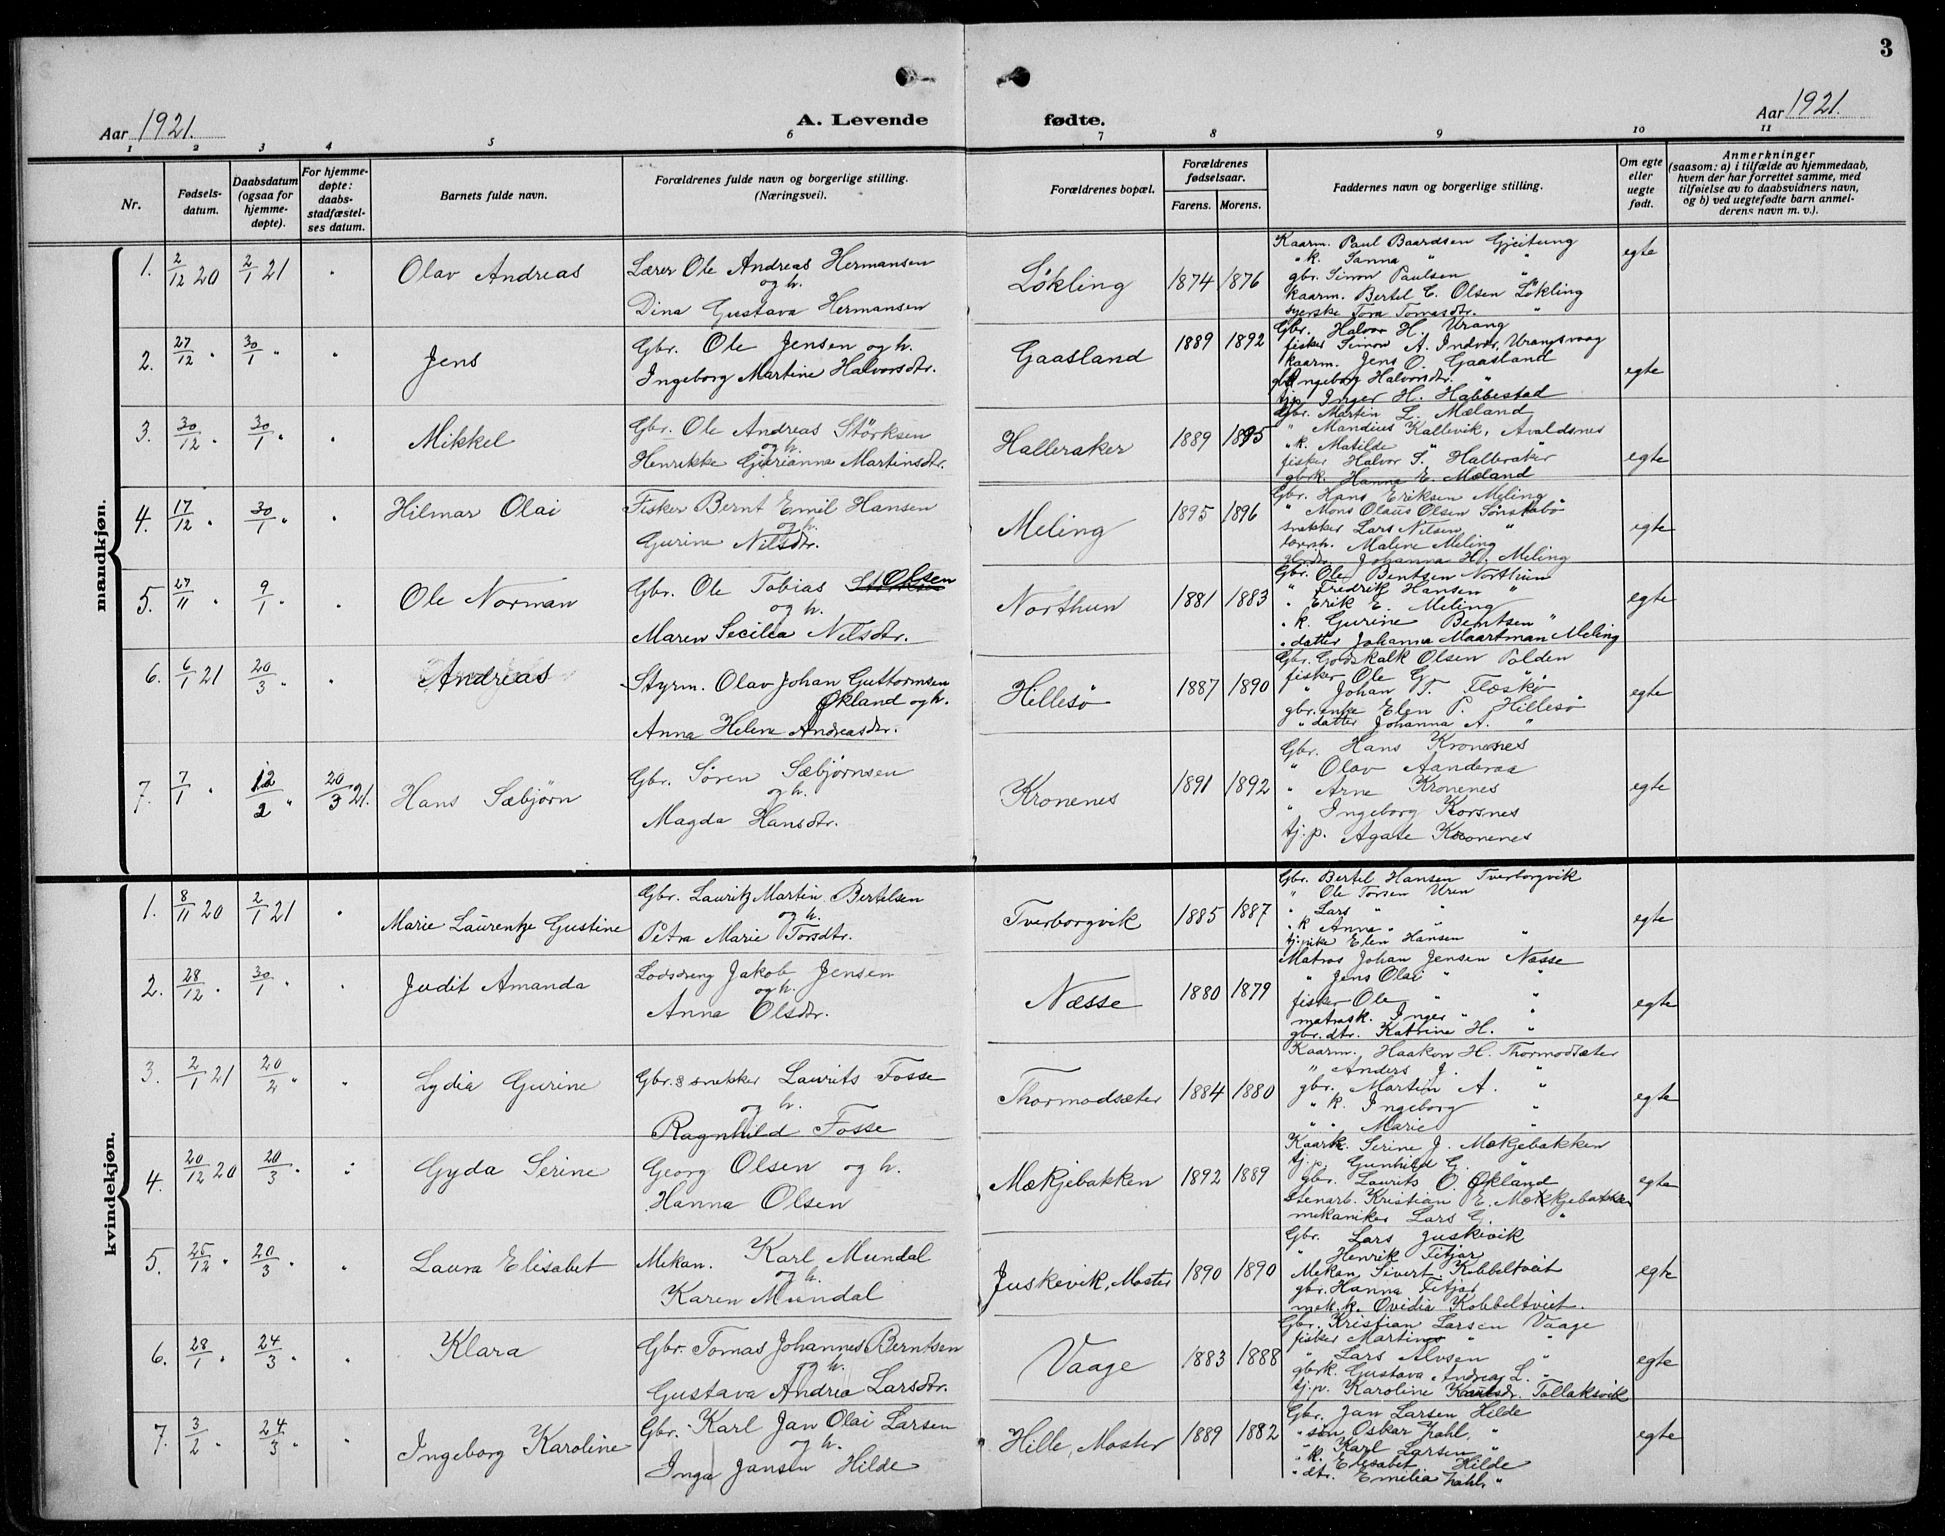 3
Aar 1921. A. Levende fødte. Aar 1921.
1 2 3 4 5 6 7 8 9 10 11
Nr. Fødsels-datum. Daabsdatum (ogsaa for hjemme-døpte). For hjemme-døpte: daabs-stadfæstel-ses datum. Barnets fulde navn. Forældrenes fulde navn og borgerlige stilling. (Næringsvei). Forældrenes bopæl. Forældrenes fødselsaar. Farens. Morens. Faddernes navn og borgerlige stilling. Om egte eller uegte født. Anmerkninger (saasom: a) i tilfælde av hjemmedaab, hvem der har forrettet samme, med tilføielse av to daabsvidners navn, og b) ved uegtefødte barn anmel-derens navn m. v.).
mandkjøn.
1. 2/12 20 2/1 21 " Olav Andreas
Lærer Ole Andreas Hermansen
og h.
Dina Gustava Hermansen
Løkling 1874 1876
Kaarm. Paul Baardsen Gjeitung
" k. Sanna " "
gbr. Simon Paulsen "
kaarm. Bertel C. Olsen Løkling
syerske Tora Tomasdtr. "
egte
2. 27/12 " 30/1 " " Jens
Gbr. Ole Jensen og h.
Ingeborg Martine Halvorsdtr.
Gaasland 1889 1892
Gbr. Halvor H. Urang
fisker Simon A. Indvær, Urangsvaag
kaarm. Jens O. Gaasland
Ingeborg Halvorsdtr. "
tjp. Inger H. Habbestad
egte
3. 30/12 " 30/1 " " Mikkel
Gbr. Ole Andreas Størksen
og h.
Henrikke Gjerianna Martinsdtr.
Halleraker 1889 1895
Gbr. Martin L. Mæland
" Mandius Kallevik, Avaldsnes
" k. Matilde " "
fisker Halvor S. Halleraker
gbrk. Hanna E. Mæland
egte
4. 17/12 " 30/1 " " Hilmar Olai
Fisker Bernt Emil Hansen
og h.
Gurine Nilsdtr.
Meling 1895 1896
Gbr. Hans Eriksen Meling
" Mons Olaus Olsen Sønstabø
snekker Lars Nilsen "
Malene Meling
Johanna H. Meling
egte
5. 27/11 " 9/1 " " Ole Norman
Gbr. Ole Tobias Olsen
og h.
Maren Secilia Nilsdtr.
Northun 1881 1883
Gbr. Ole Bentsen Northun
" Fredrik Hansen "
" Erik E. Meling
" k. Gurine Bentsen "
" datter Johanna Maartman Meling
egte
6. 6/1 21 20/3 " " Andreas
Styrm. Olav Johan Guttormsen
Økland og h.
Anna Helene Andreasdtr.
Hillesø 1887 1890
Gbr. Godskalk Olsen Polden
fisker Ole G. "
" Johan T. Flæskø
gbr. enke Elen P. Hillesø
" datter Johanna A. "
egte
7. 7/1 " 12/2 " 20/3 21. Hans Sæbjørn
Gbr. Søren Sæbjørnsen
og h.
Magda Hansdtr.
Kronenes 1891 1892
Gbr. Hans Kronenes
" Olav Aanderaa
" Arne Kronenes
" Ingeborg Korsnes
tj. p. Agate Kronenes
egte
kvindekjøn.
1. 8/11 20 2/1 21 " Marie Laurentze Gustine
Gbr. Lauritz Martin Bertelsen
og h.
Petra Marie Torsdtr.
Tverborgvik 1885 1887
Gbr. Bertel Hansen Tverborgvik
" Ole Torsen Uren
" Lars " "
" k Anna " "
tjpike Elen Hansen "
egte
2. 28/12 " 30/1 " " Judit Amanda
Lodsdreng Jakob Jensen
og h.
Anna Olsdtr.
Næsse 1880 1879
Matros Johan Jensen Næsse
" Jens Olai " "
fisker Ole " "
matrosk. Inger " "
gbr. dtr. Katrine H. "
egte
3. 2/1 21 20/2 " " Lydia Gurine
Gbr. & snekker Laurits Fosse
og h.
Ragnhild Fosse
Thormodsæter 1884 1880
Kaarm. Haakon H. Thormodsæter
" Anders J. "
gbr. Martin A. "
" k. Ingeborg "
" " Marie "
egte
4. 20/12 20 20/3 " " Gyda Serine
Georg Olsen og h.
Hanna Olsen
Mækjebakken 1892 1889
Kaark. Serine J. Mækjebakken
tj. p. Gunhild G. "
gbr. Laurits O. Økland
Stenarb. Kristian E. Mækjebakken
mekaniker Lars G. "
egte
5. 25/12 " 20/3 " " Laura Elisabet
Mekan. Karl Mundal
og h.
Karen Mundal
Juskevik, Moster 1890 1890
Gbr. Lars Juskevik
" Henrik Fitjar
Mekan. Sivert Kobbeltveit
gbr. Hanna Fitjar
mek. k. Ovidia Kobbeltveit.
egte
6. 28/1 " 24/3 " " Klara
Gbr. Tomas Johannes Berntsen
og h.
Gustava Andrea Larsdtr.
Vaage 1883 1888
Gbr. Kristian Larsen Vaage
fisker Martines " "
" Lars Alvsen "
gbrk. Gustava Andrea L. "
tj. p. Karoline Tollaksvik
egte
7. 3/2 " 24/3 " " Ingeborg Karoline
Gbr. Karl Jan Olai Larsen
og h.
Inga Jansen Hilde
Hille, Moster 1889 1882
Gbr. Jan Larsen Hilde
" søn Oskar Zahl, "
" Karl Larsen "
" k. Elisabet Hilde
" dtr. Emelia Zahl, "
egte